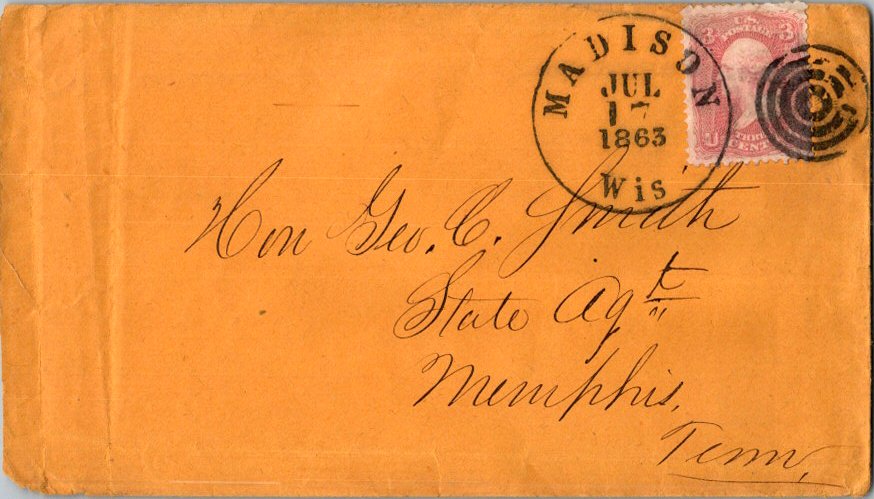 MADISON
JUL
17
1863
Wis
3 U.S. 3
POSTAGE
THREE
CENTS
U
Hon Geo. C. Smith
State Agt
Memphis,
Tenn,